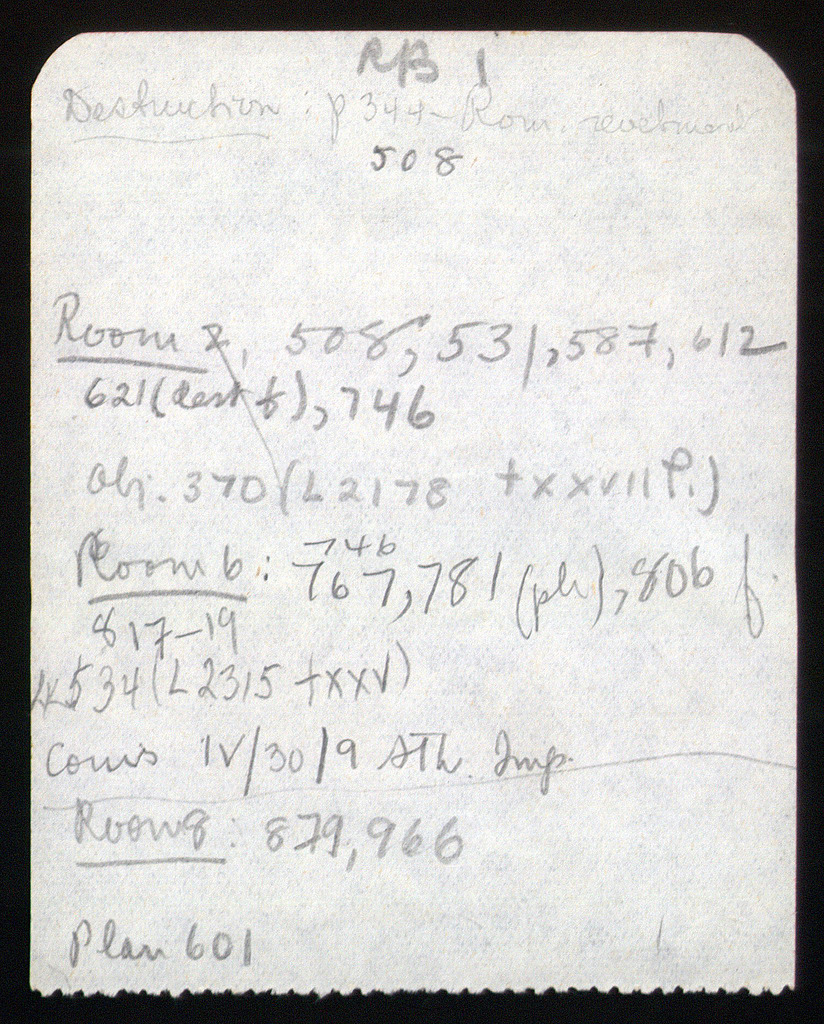 RB 1
Destruction : p 344 - Rom. revetment
508
Room 2, 508, 531, 587, 612
621 (dest f), 746
Obj. 370 (L 2178 + XXVII P.)
Room 6 : 746
767, 781 (ph), 806 f.
817-19
534 (L 2315 + XXV)
Coins IV/30/9 Ath. Imp.
Room 8 : 879, 966
Plan 601